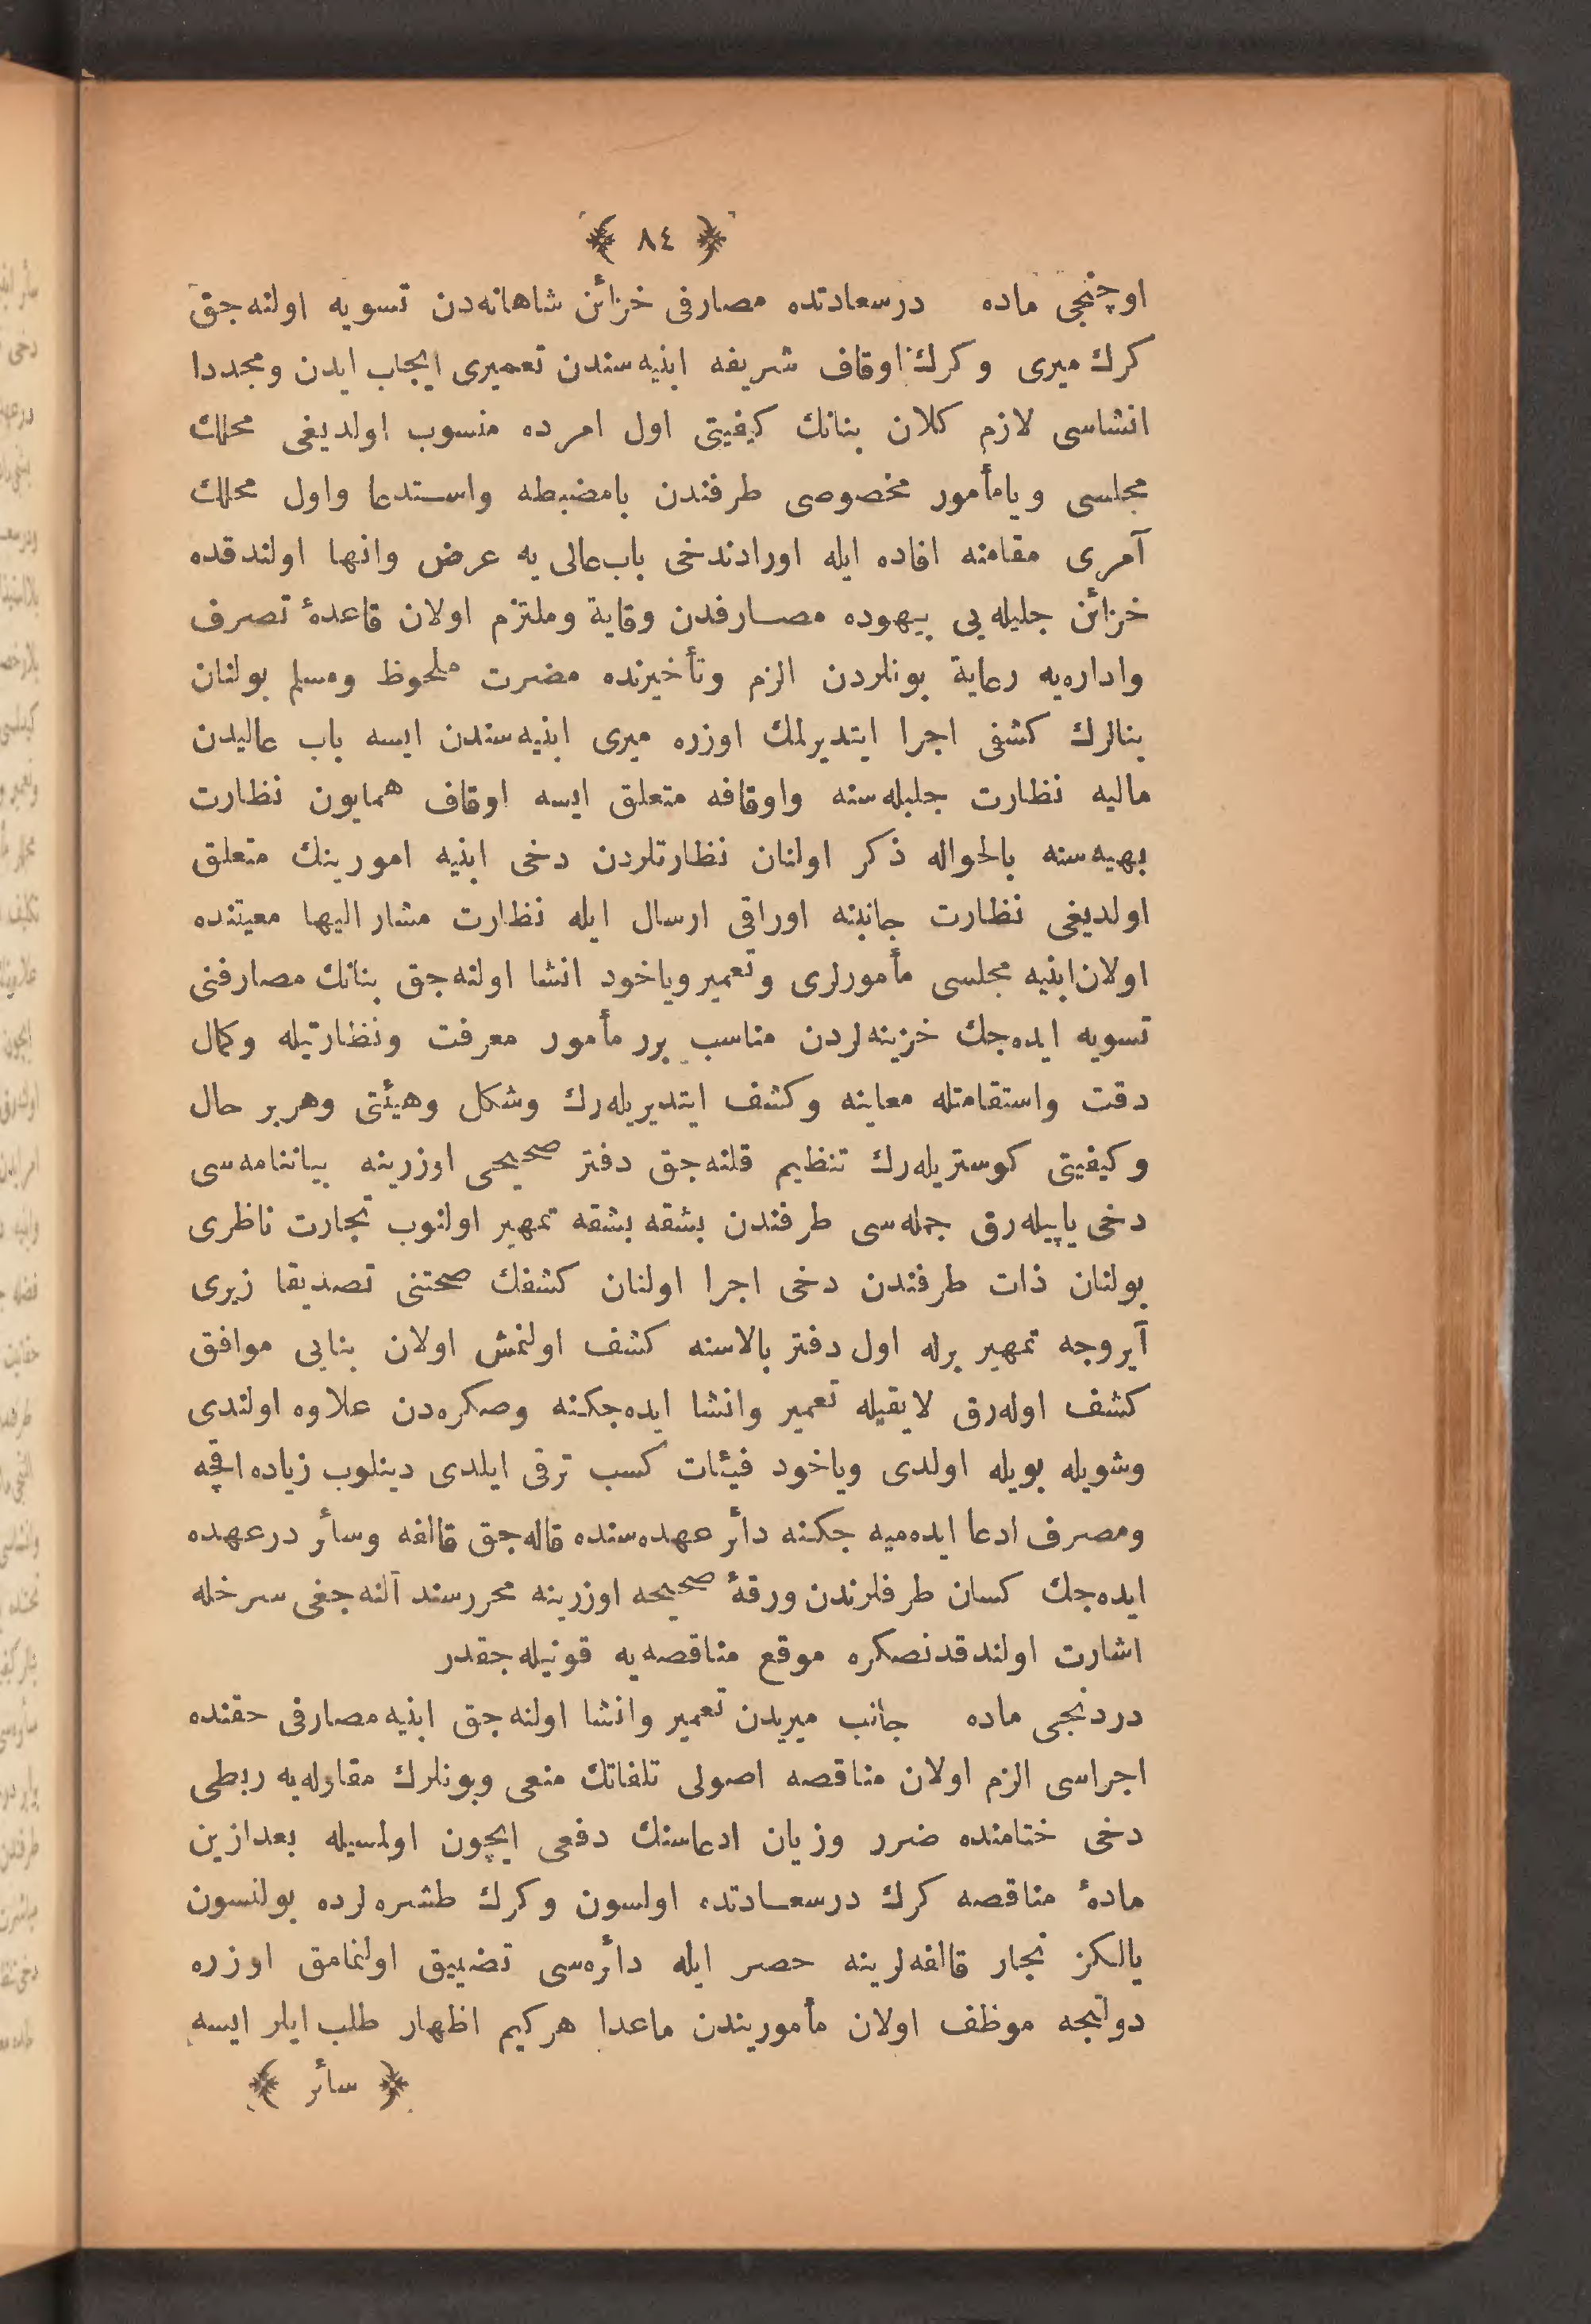 ﴿ ٨٤ ﴾
اوچنجی ماده درسعادتده مصارفی خزائن شاهانه‌دن تسویه اولنه‌جق
كرك میری وكرك اوقاف شریفه ابنیه‌سندن تعمیری ایجاب ایدن ومجددا
انشاسی لازم كلان بنانك كیفیتی اول امرده منسوب اولدیغی محلك
مجلسی ویامأمور مخصوصی طرفندن بامضبطه واستدعا واول محلك
آمری مقامنه افاده ایله اورادندخی باب‌عالی یه عرض وانها اولندقده
خزائن جلیله‌یی بیهوده مصارفدن وقایة وملتزم اولان قاعدهٔ تصرف
واداره‌یه رعایة بونلردن الزم وتأخیرنده مضرت ملحوظ ومسلم بولنان
بنالرك كشفی اجرا ایتدیرلمك اوزره میری ابنیه‌سندن ایسه باب عالیدن
مالیه نظارت جلیله‌سنه واوقافه متعلق ایسه اوقاف همایون نظارت
بهیه‌سنه بالحواله ذكر اولنان نظارتلردن دخی ابنیه امورینك متعلق
اولدیغی نظارت جانبنه اوراقی ارسال ایله نظارت مشار الیها معیتنده
اولان‌ابنیه مجلسی مأمورلری وتعمیر ویاخود انشا اولنه‌جق بنانك مصارفنی
تسویه ایده‌جك خزینه‌لردن مناسب برر مأمور معرفت ونظارتیله وكمال
دقت واستقامتله معاینه وكشف ایتدیریله‌رك وشكل وهیئتی وهربر حال
وكیفیتی كوستریله‌رك تنظیم قلنه‌جق دفتر صحیحی اوزرینه بیاننامه‌سی
دخی یاپیله‌رق جمله‌سی طرفندن بشقه بشقه تمهیر اولنوب تجارت ناظری
بولنان ذات طرفندن دخی اجرا اولنان كشفك صحتنی تصدیقا زیری
آیروجه تمهیر برله اول دفتر بالاسنه كشف اولنمش اولان بنایی موافق
كشف اوله‌رق لایقیله تعمیر وانشا ایده‌جكنه وصكره‌دن علاوه اولندی
وشویله بویله اولدی ویاخود فیئات كسب ترقی ایلدی دینلوب زیاده اقچه
ومصرف ادعا ایده‌میه جكنه دائر عهده‌سنده قاله‌جق قالفه وسائر درعهده
ایده‌جك كسان طرفلرندن ورقهٔ صحیحه اوزرینه محررسند آلنه‌جغی سرخله
اشارت اولندقدنصكره موقع مناقصه‌یه قونیله‌جقدر
دردنجی ماده جانب میریدن تعمیر وانشا اولنه‌جق ابنیه مصارفی حقنده
اجراسی الزم اولان مناقصه اصولی تلفاتك منعی وبونلرك مقاوله‌یه ربطی
دخی ختامنده ضرر وزیان ادعاسنك دفعی ایچون اولمسیله بعدازین
مادهٔ مناقصه كرك درسعادتده اولسون وكرك طشره‌لرده بولنسون
یالكز نجار قالفه‌لرینه حصر ایله دائره‌سی تضییق اولنمامق اوزره
دولتجه موظف اولان مأموریندن ماعدا هركیم اظهار طلب ایلر ایسه
﴿ سائر ﴾